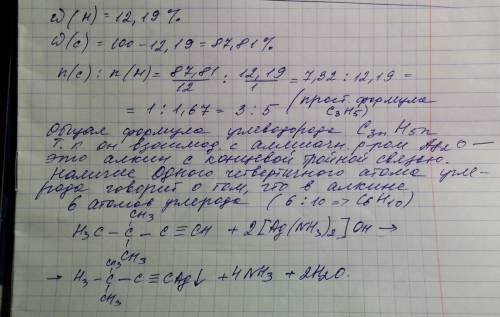 ω(H) = 12,19 %
ω(C) = 100 - 12,19 = 87,81 %
n(C) : n(H) = 87,81/12 : 12,19/1 = 7,32 : 12,19 =
= 1 : 1,67 = 3 : 5 (прост. формула C3H5)
Общая формула углеводорода C3nH5n
Т.к он взаимод с аммиачн. р-ром Ag2O —
это алкин с концевой тройной связью.
Наличие одного четвертичного атома угле-
рода говорит о том, что в алкине
6 атомов углерода (6 : 10 => C6H10)
CH3
H3C - C - C ≡ CH + 2[Ag(NH3)2]OH →
CH3
CH3
→ H3 - C - C ≡ CAg↓ + 4NH3 + 2H2O.
CH3